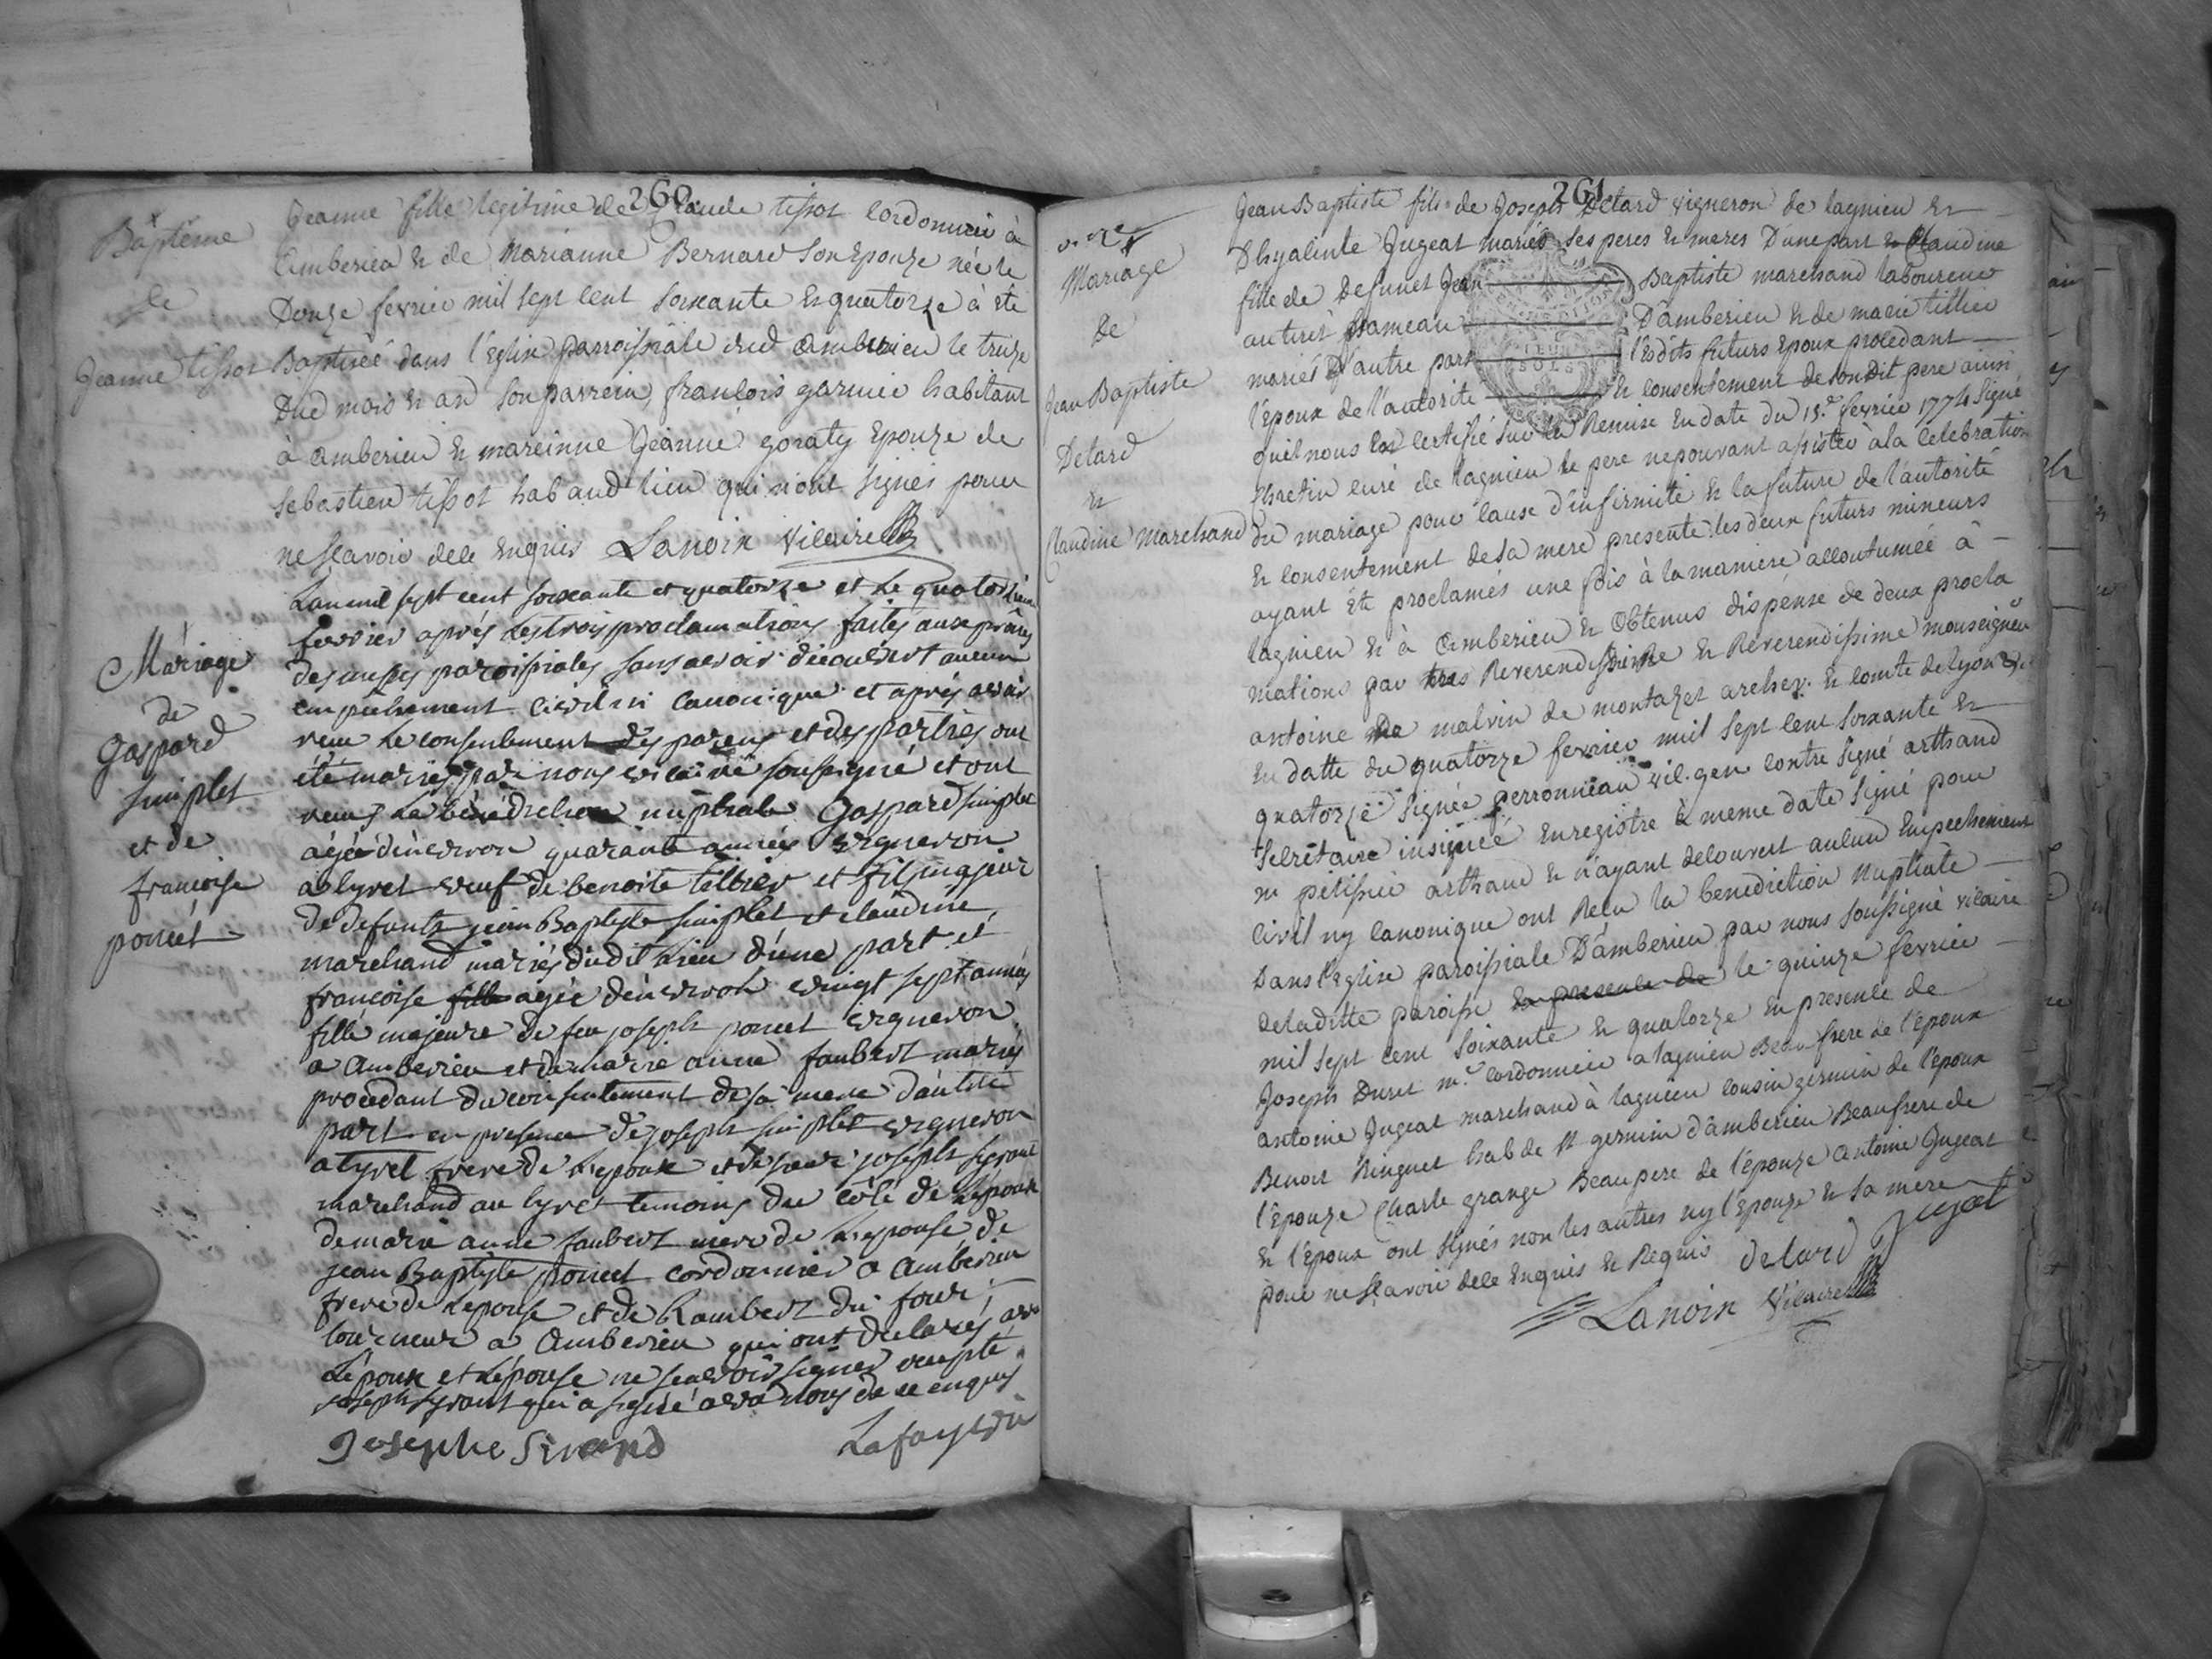 260
Baptême
de
Jeanne tissot
Jeanne fille legitime de Claude tissot Cordonnier à
Amberieu & de Marianne Bernard son Epouze née le
Douze fevrier mil sept cent soixante & quatorze à été
Baptiseé dans l'Eglise parroissiale dud Amberieu le treize
Dud mois & an son parrein françois garnier habitant
à amberieu & mareinne Jeanne goraty Epouze de
Sebastien tissot hab aud lieu qui n'ont signés pour
ne sçavoir dece Enquis Lanoix Vicaire
Mariage
de
Gaspard
simplet
et de
françoise
poncet
Lan mil sept cent soixante et quatorze et le quatorzieme
fevrier aprés les trois proclamations faites aux prônes
des messes paroissiales sans avoir découvert aucun
empêchement civil ni canonique et aprés avoir
reçu le consentement des parens et des parties ont
été mariés par nous vicaire soussigné et ont
reçu la bénédiction nuptiale Gaspard simplet
agée d'environ quarante années vigneron
a tyret veuf de benoite tillier et fils majeur
de defunts jean Baptiste simplet et claudine
marchand mariés dudit lieu d'une part et
françoise fille agée d'environ vingt sept années
fille majeure de feu joseph poncet vigneron
a Amberieu et de marie anne joubert mariés
procedant du consentement de sa mere d'autre
part en presence de joseph simplet vigneron
a tyret frere de l'epoux et de sieur joseph sirant
marchand au tyret temoins du côté de l'epoux
de marie anne joubert mere de l'epouse de
jean Baptiste poncet cordonnier a Amberieu
frere de l'epouse et de Rambert du four
tourneur a Amberieu qui ont declarés avec
l'époux et l'épouse ne scavoir signer excepté
joseph sirant qui a signé avec nous de ce enquis
Josephe Sirand Lafay vic
261
Mariage
de
Jean Baptiste
Delard
&
Claudine Marchand
Jean Baptiste fils de Joseph Delard vigneron de lagnieu &
D'hyacinte Jugeat mariés ses peres & meres D'une part & Claudine
fille de Defunct Jean Baptiste marchand laboureur
au tiret hameau D'amberieu & de marie tillier
mariés D'autre part lesdits futurs Epoux procedant
l'Epoux de l'autorité & consentement de son dit pere ainsi
qu'il nous est certifié sur la Remise En date du 15e. fevrier 1774 Signé
Chretin curé de lagnieu le pere ne pouvant assister à la celebration
du mariage pour cause d'infirmité & la future de l'autorité
& consentement de sa mere presente les deux futurs mineurs
ayant été proclamés une fois à la maniere accoutumée à
lagnieu & à Amberieu & Obtenus dispense de deux procla
mations par tres Reverendissime & Reverendissime monseigneur
antoine de malvin de montazet archev. & comte de lyon
En datte du quatorze fevrier mil sept cent soixante &
quatorze Signée perronneau vic. gen contre Signé arthaud
Secretaire insinueé Enregistre à meme date Signé pour
m petissié arthaud & n'ayant decouvert aucun Empechement
civil ny canonique ont Recu la benediction Nuptiale
Dans l'eglise paroissiale D'amberieu par nous soussigné vicaire
de laditte paroisse En presence de le quinze fevrier
mil sept cent soixante & quatorze En presence de
Joseph Duret m.e cordonnier a lagnieu Beau frere de l'epoux
antoine Jugeat marchand à lagnieu cousin germain de l'epoux
Benoit Ringuet hab de St germain d'amberieu Beaufrere de
l'epouze Charle grange Beaupere de l'epouze antoine Jugeat
& l'epoux ont signés non les autres ny l'epouze & sa mere
pour ne Sçavoir dece Enquis & Requis delard Jugeat
Lanoix Vicaire